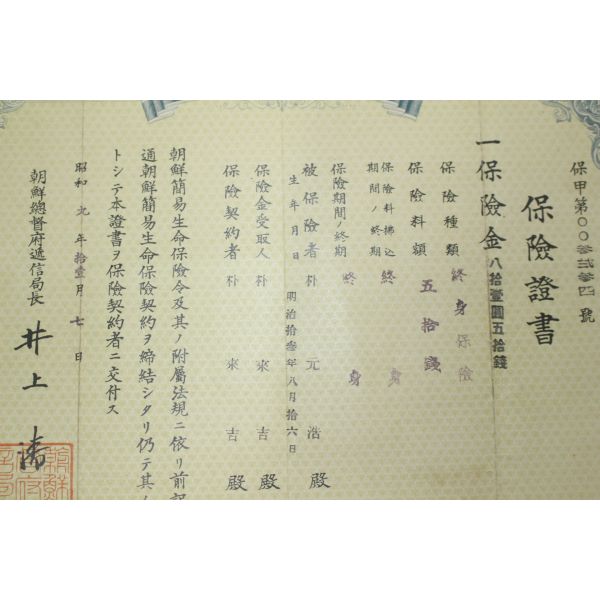 保險證書
保甲第〇〇參貳參四號
一保險金八拾壹圓五拾錢
保險種類 終身保險
保險料額 五拾錢
保險料拂込期間ノ終期 終身
保險期間ノ終期 終身
被保險者 朴元浩殿
生年月日 明治拾參年八月拾六日
保險金受取人 朴來吉殿
保險契約者 朴來吉殿
朝鮮簡易生命保險令及其ノ附屬法規ニ依リ前記
通朝鮮簡易生命保險契約ヲ締結シタリ仍テ其ノ
トシテ本證書ヲ保險契約者ニ交付ス
昭和九年拾壹月七日
朝鮮總督府遞信局長 井上清